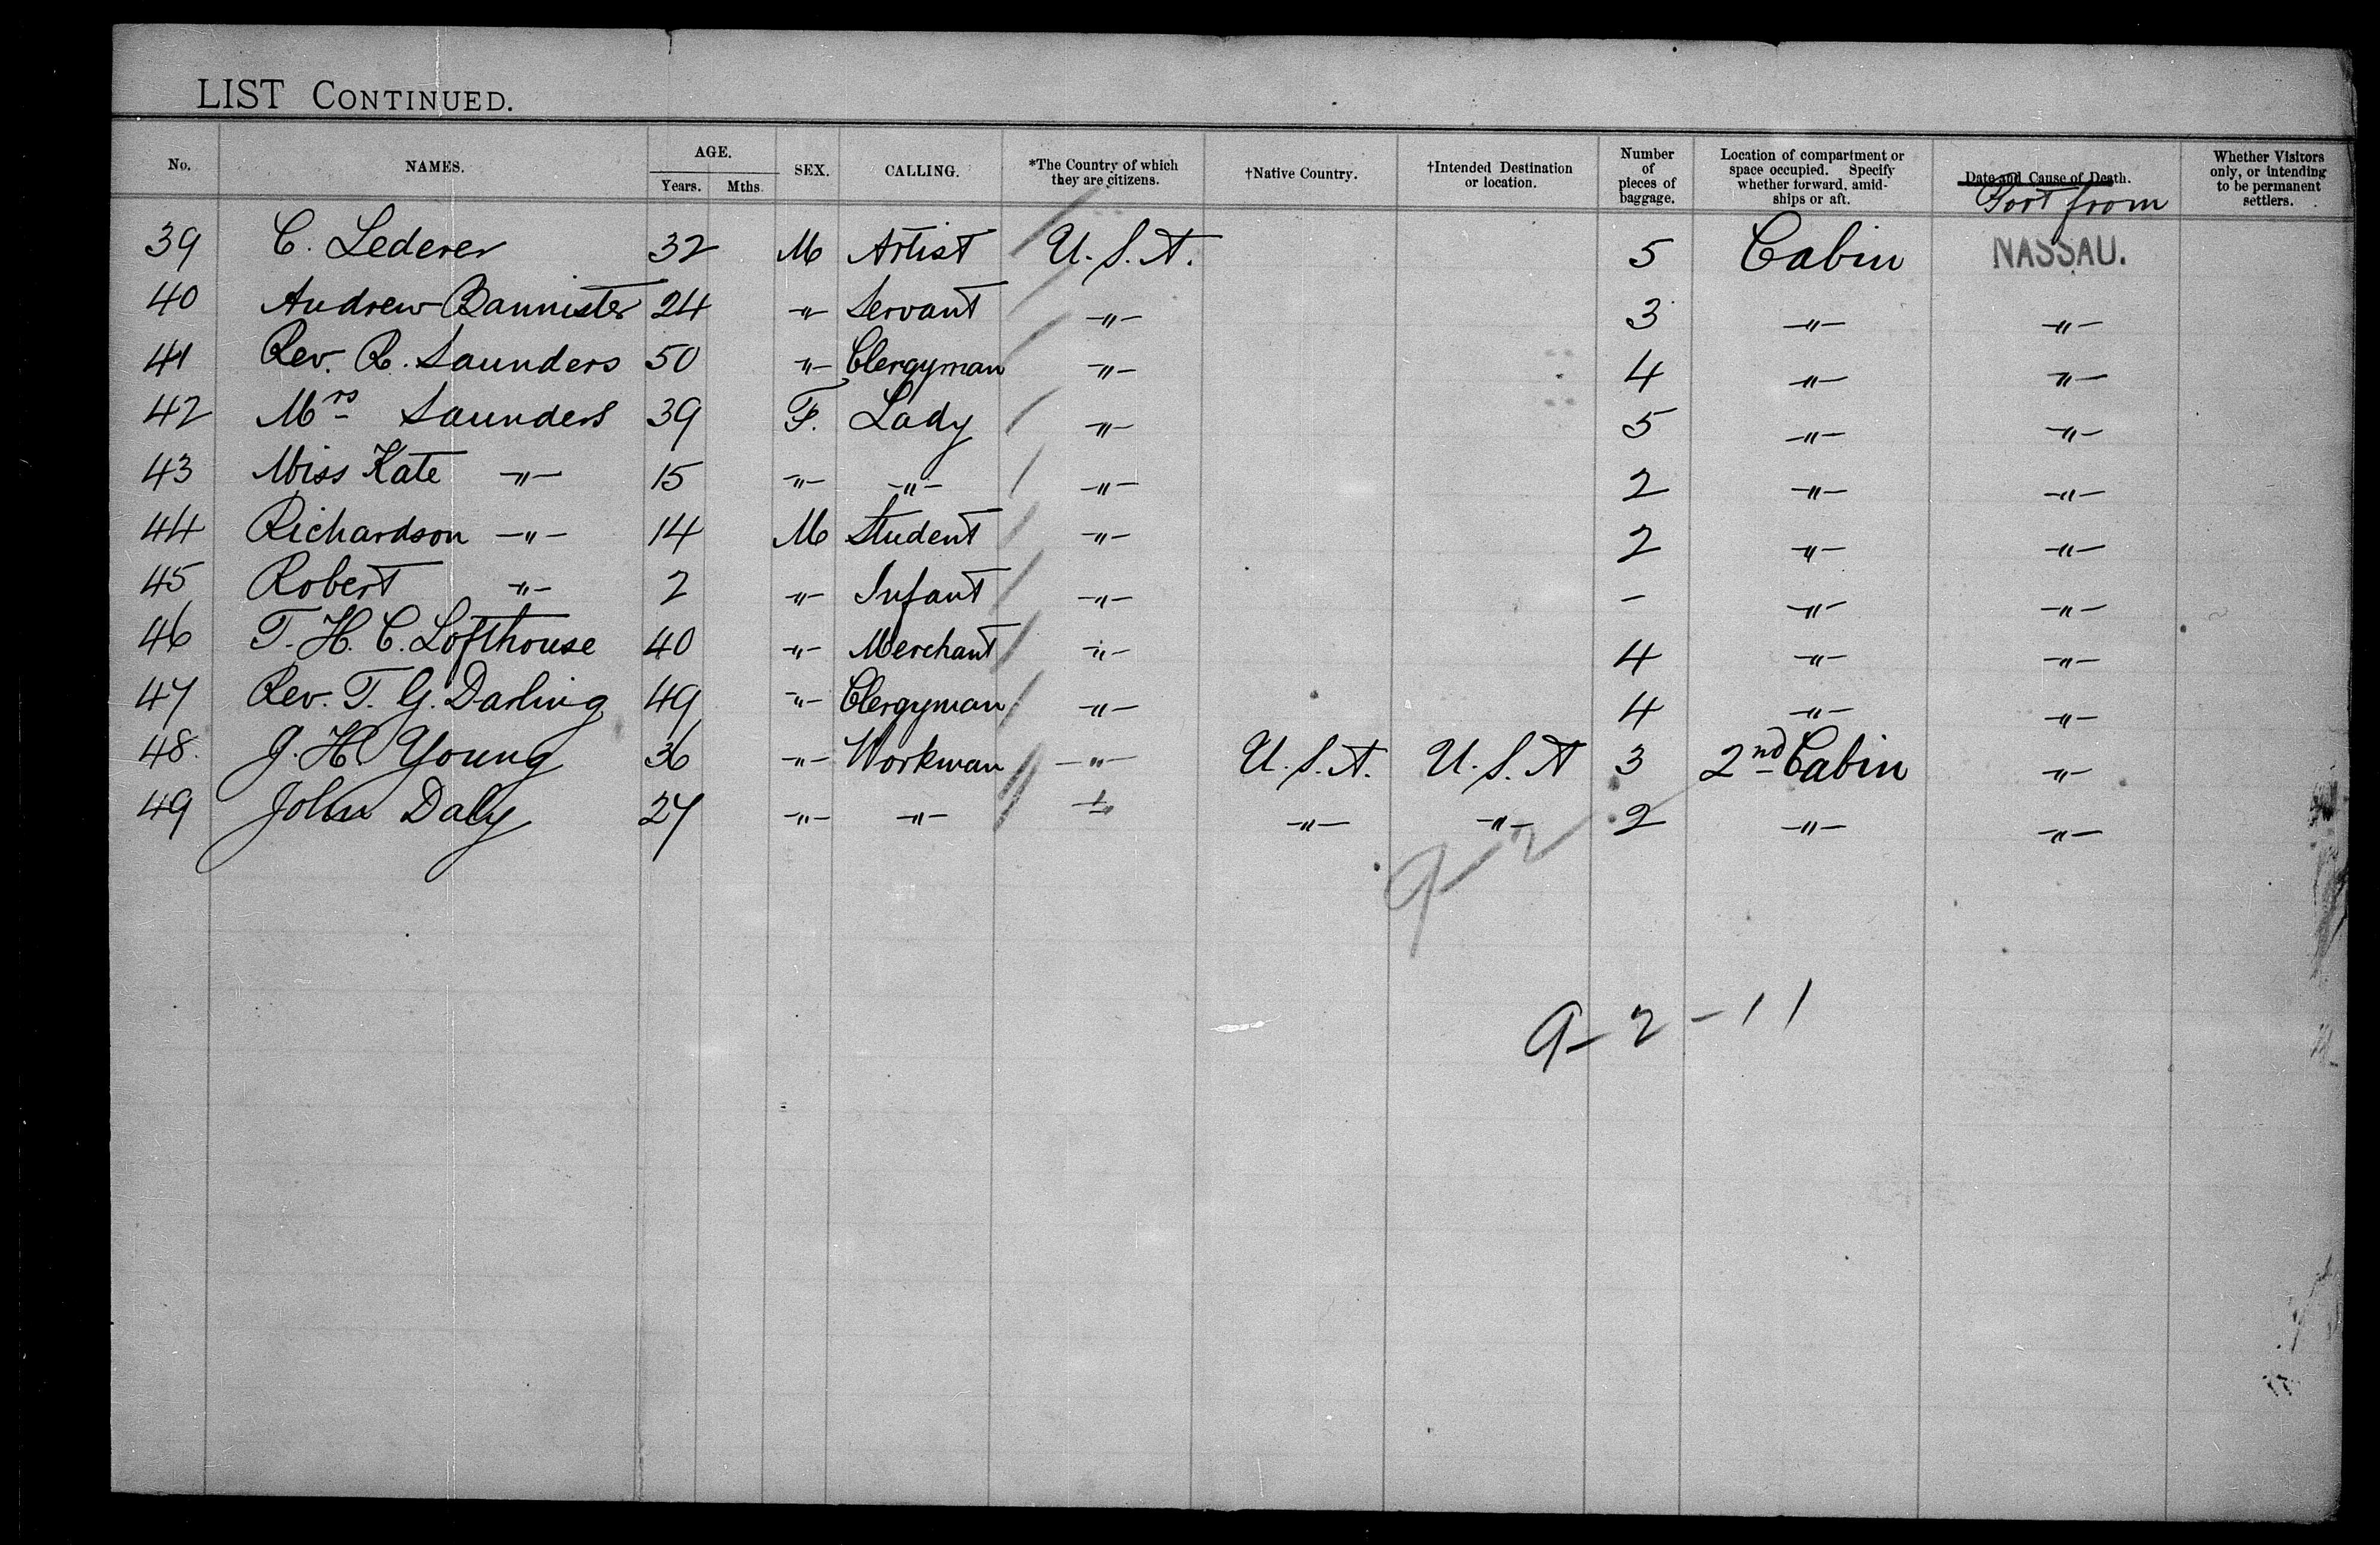 LIST CONTINUED.
No. NAMES. AGE. Years. Mths. SEX. CALLING. *The Country of which they are citizens. †Native Country. †Intended Destination or location. Number of pieces of baggage. Location of compartment or space occupied. Specify whether forward, amidships or aft. Date and Cause of Death. Port from Whether Visitors only, or intending to be permanent settlers.
39 C. Lederer 32 M Artist U.S.A. 5 Cabin NASSAU.
40 Andrew Bannister 24 -"- Servant -"- 3 -"- -"-
41 Rev. R. Saunders 50 -"- Clergyman -"- 4 -"- -"-
42 Mrs Saunders 39 F. Lady -"- 5 -"- -"-
43 Miss Kate -"- 15 -"- -"- -"- 2 -"- -"-
44 Richardson -"- 14 M Student -"- 2 -"- -"-
45 Robert -"- 2 -"- Infant -"- - -"- -"-
46 T. H. C. Lofthouse 40 -"- Merchant -"- 4 -"- -"-
47 Rev. T. G. Darling 49 -"- Clergyman -"- 4 -"- -"-
48. J. H. Young 36 -"- Workman -"- U.S.A. U.S.A 3 2nd Cabin -"-
49 John Daly 27 -"- -"- -"- -"- -"- 2 -"- -"-
9-2
9-2-11